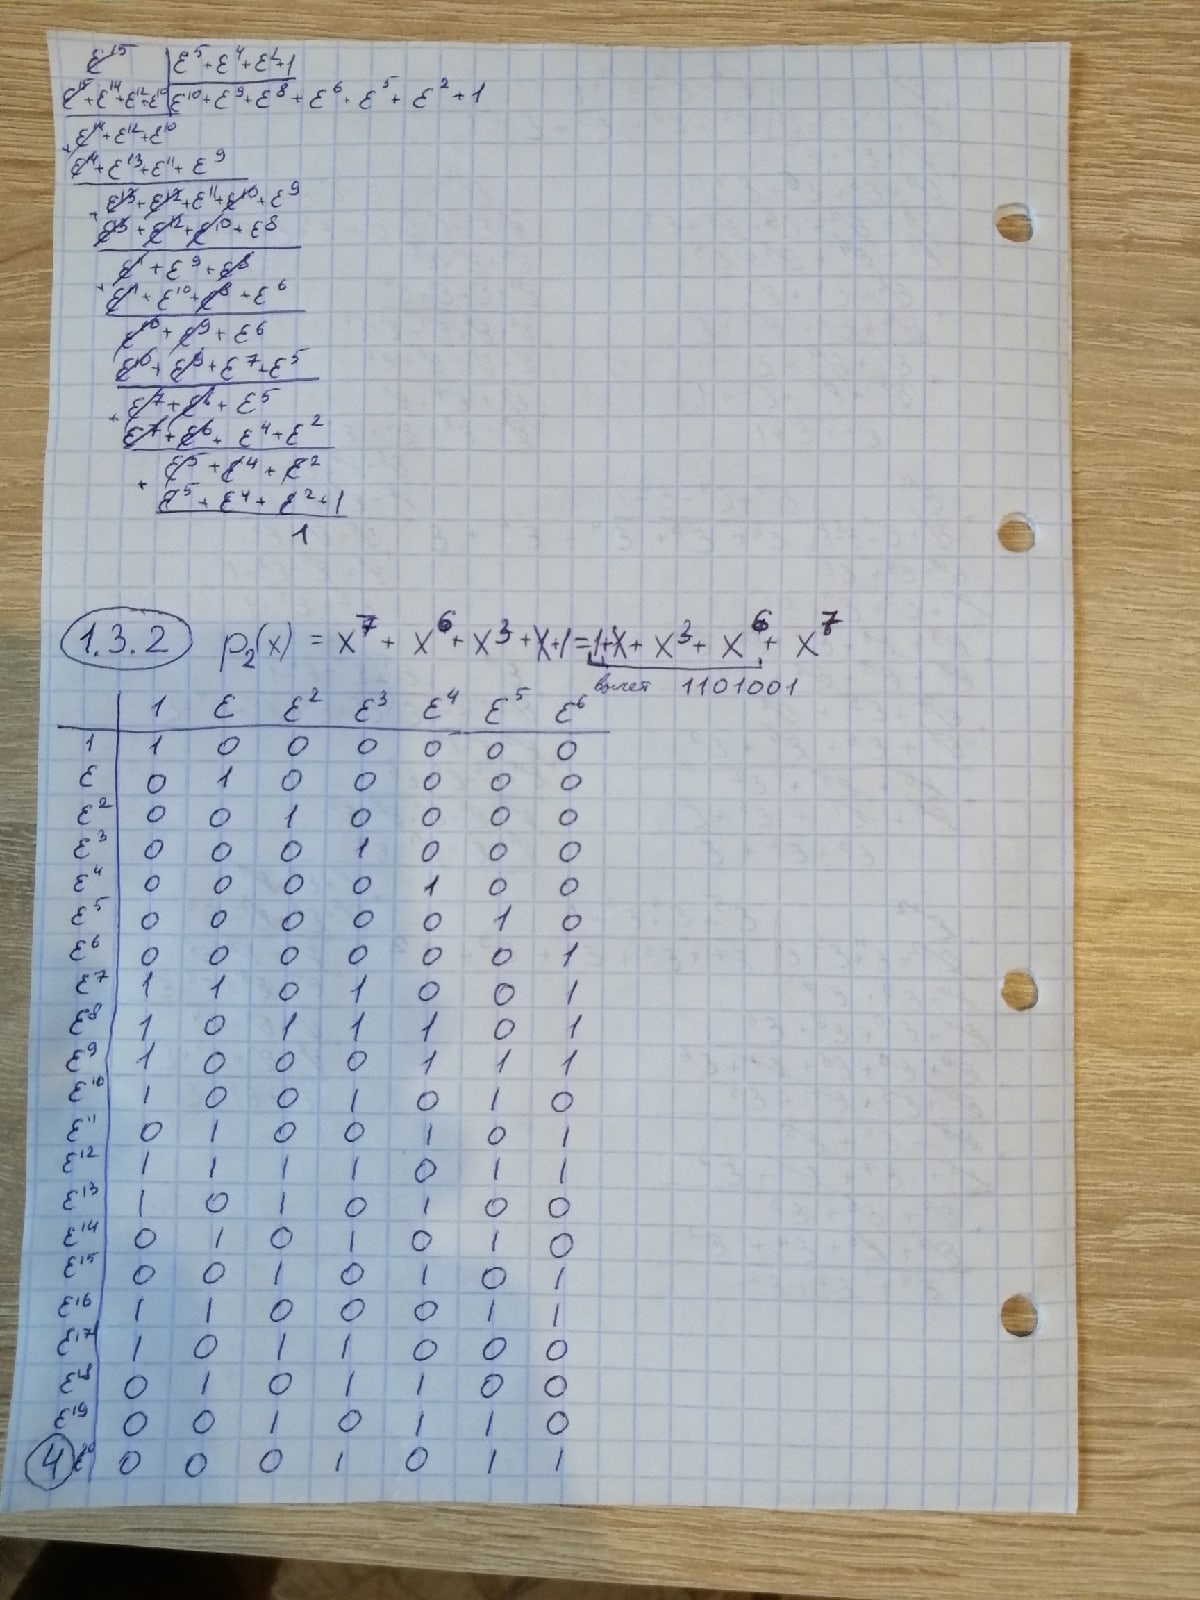 ε¹⁵ | ε⁵+ε⁴+ε²+1
ε¹⁵+ε¹⁴+ε¹²+ε¹⁰ | ε¹⁰+ε⁹+ε⁸+ε⁶+ε⁵+ε²+1
+ε¹⁴+ε¹²+ε¹⁰
ε¹⁴+ε¹³+ε¹¹+ε⁹
+ε¹³+ε¹²+ε¹¹+ε¹⁰+ε⁹
ε¹³+ε¹²+ε¹⁰+ε⁸
+ε¹¹+ε⁹+ε⁸
ε¹¹+ε¹⁰+ε⁸+ε⁶
ε¹⁰+ε⁹+ε⁶
ε¹⁰+ε⁹+ε⁷+ε⁵
+ε⁷+ε⁶+ε⁵
ε⁷+ε⁶+ε⁴+ε²
+ε⁵+ε⁴+ε²
ε⁵+ε⁴+ε²+1
1
1.3.2 p₂(x) = x⁷+x⁶+x³+x+1=1+x+x³+x⁶+x⁷
вычет 1101001
1 ε ε² ε³ ε⁴ ε⁵ ε⁶
1 1 0 0 0 0 0 0
ε 0 1 0 0 0 0 0
ε² 0 0 1 0 0 0 0
ε³ 0 0 0 1 0 0 0
ε⁴ 0 0 0 0 1 0 0
ε⁵ 0 0 0 0 0 1 0
ε⁶ 0 0 0 0 0 0 1
ε⁷ 1 1 0 1 0 0 1
ε⁸ 1 0 1 1 1 0 1
ε⁹ 1 0 0 0 1 1 1
ε¹⁰ 1 0 0 1 0 1 0
ε¹¹ 0 1 0 0 1 0 1
ε¹² 1 1 1 1 0 1 1
ε¹³ 1 0 1 0 1 0 0
ε¹⁴ 0 1 0 1 0 1 0
ε¹⁵ 0 0 1 0 1 0 1
ε¹⁶ 1 1 0 0 0 1 1
ε¹⁷ 1 0 1 1 0 0 0
ε¹⁸ 0 1 0 1 1 0 0
ε¹⁹ 0 0 1 0 1 1 0
4 ε²⁰ 0 0 0 1 0 1 1